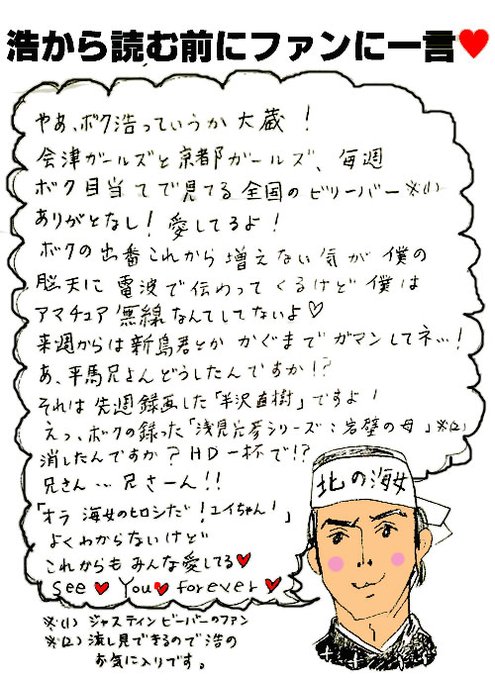 浩から読む前にファンに一言♥
やあ、ボク浩っていうか大蔵！
会津ガールズと京都ガールズ、毎週
ボク目当てで見てる全国のビリーバー※(1)
ありがとなし！愛してるよ！
ボクの出番これから増えない気が僕の
脳天に電波で伝わってくるけど僕は
アマチュア無線なんてしてないよ♡
来週からは新島君とか かぐまでガマンしてネ…！
あ、平馬兄さんどうしたんですか！？
それは先週録画した「半沢直樹」ですよ！
えっ、ボクの録った「浅見光彦シリーズ：岩壁の母」※(2)
消したんですか？HD一杯で！？
兄さん…兄さーん！！
「オラ 海女のヒロシだ！ユイちゃん！」
よくわからないけど
これからもみんな愛してる♥
See ♥ You♥ forever♥
北の海女
※(1) ジャスティンビーバーのファン
※(2) 流し見できるので浩の
お気に入りです。